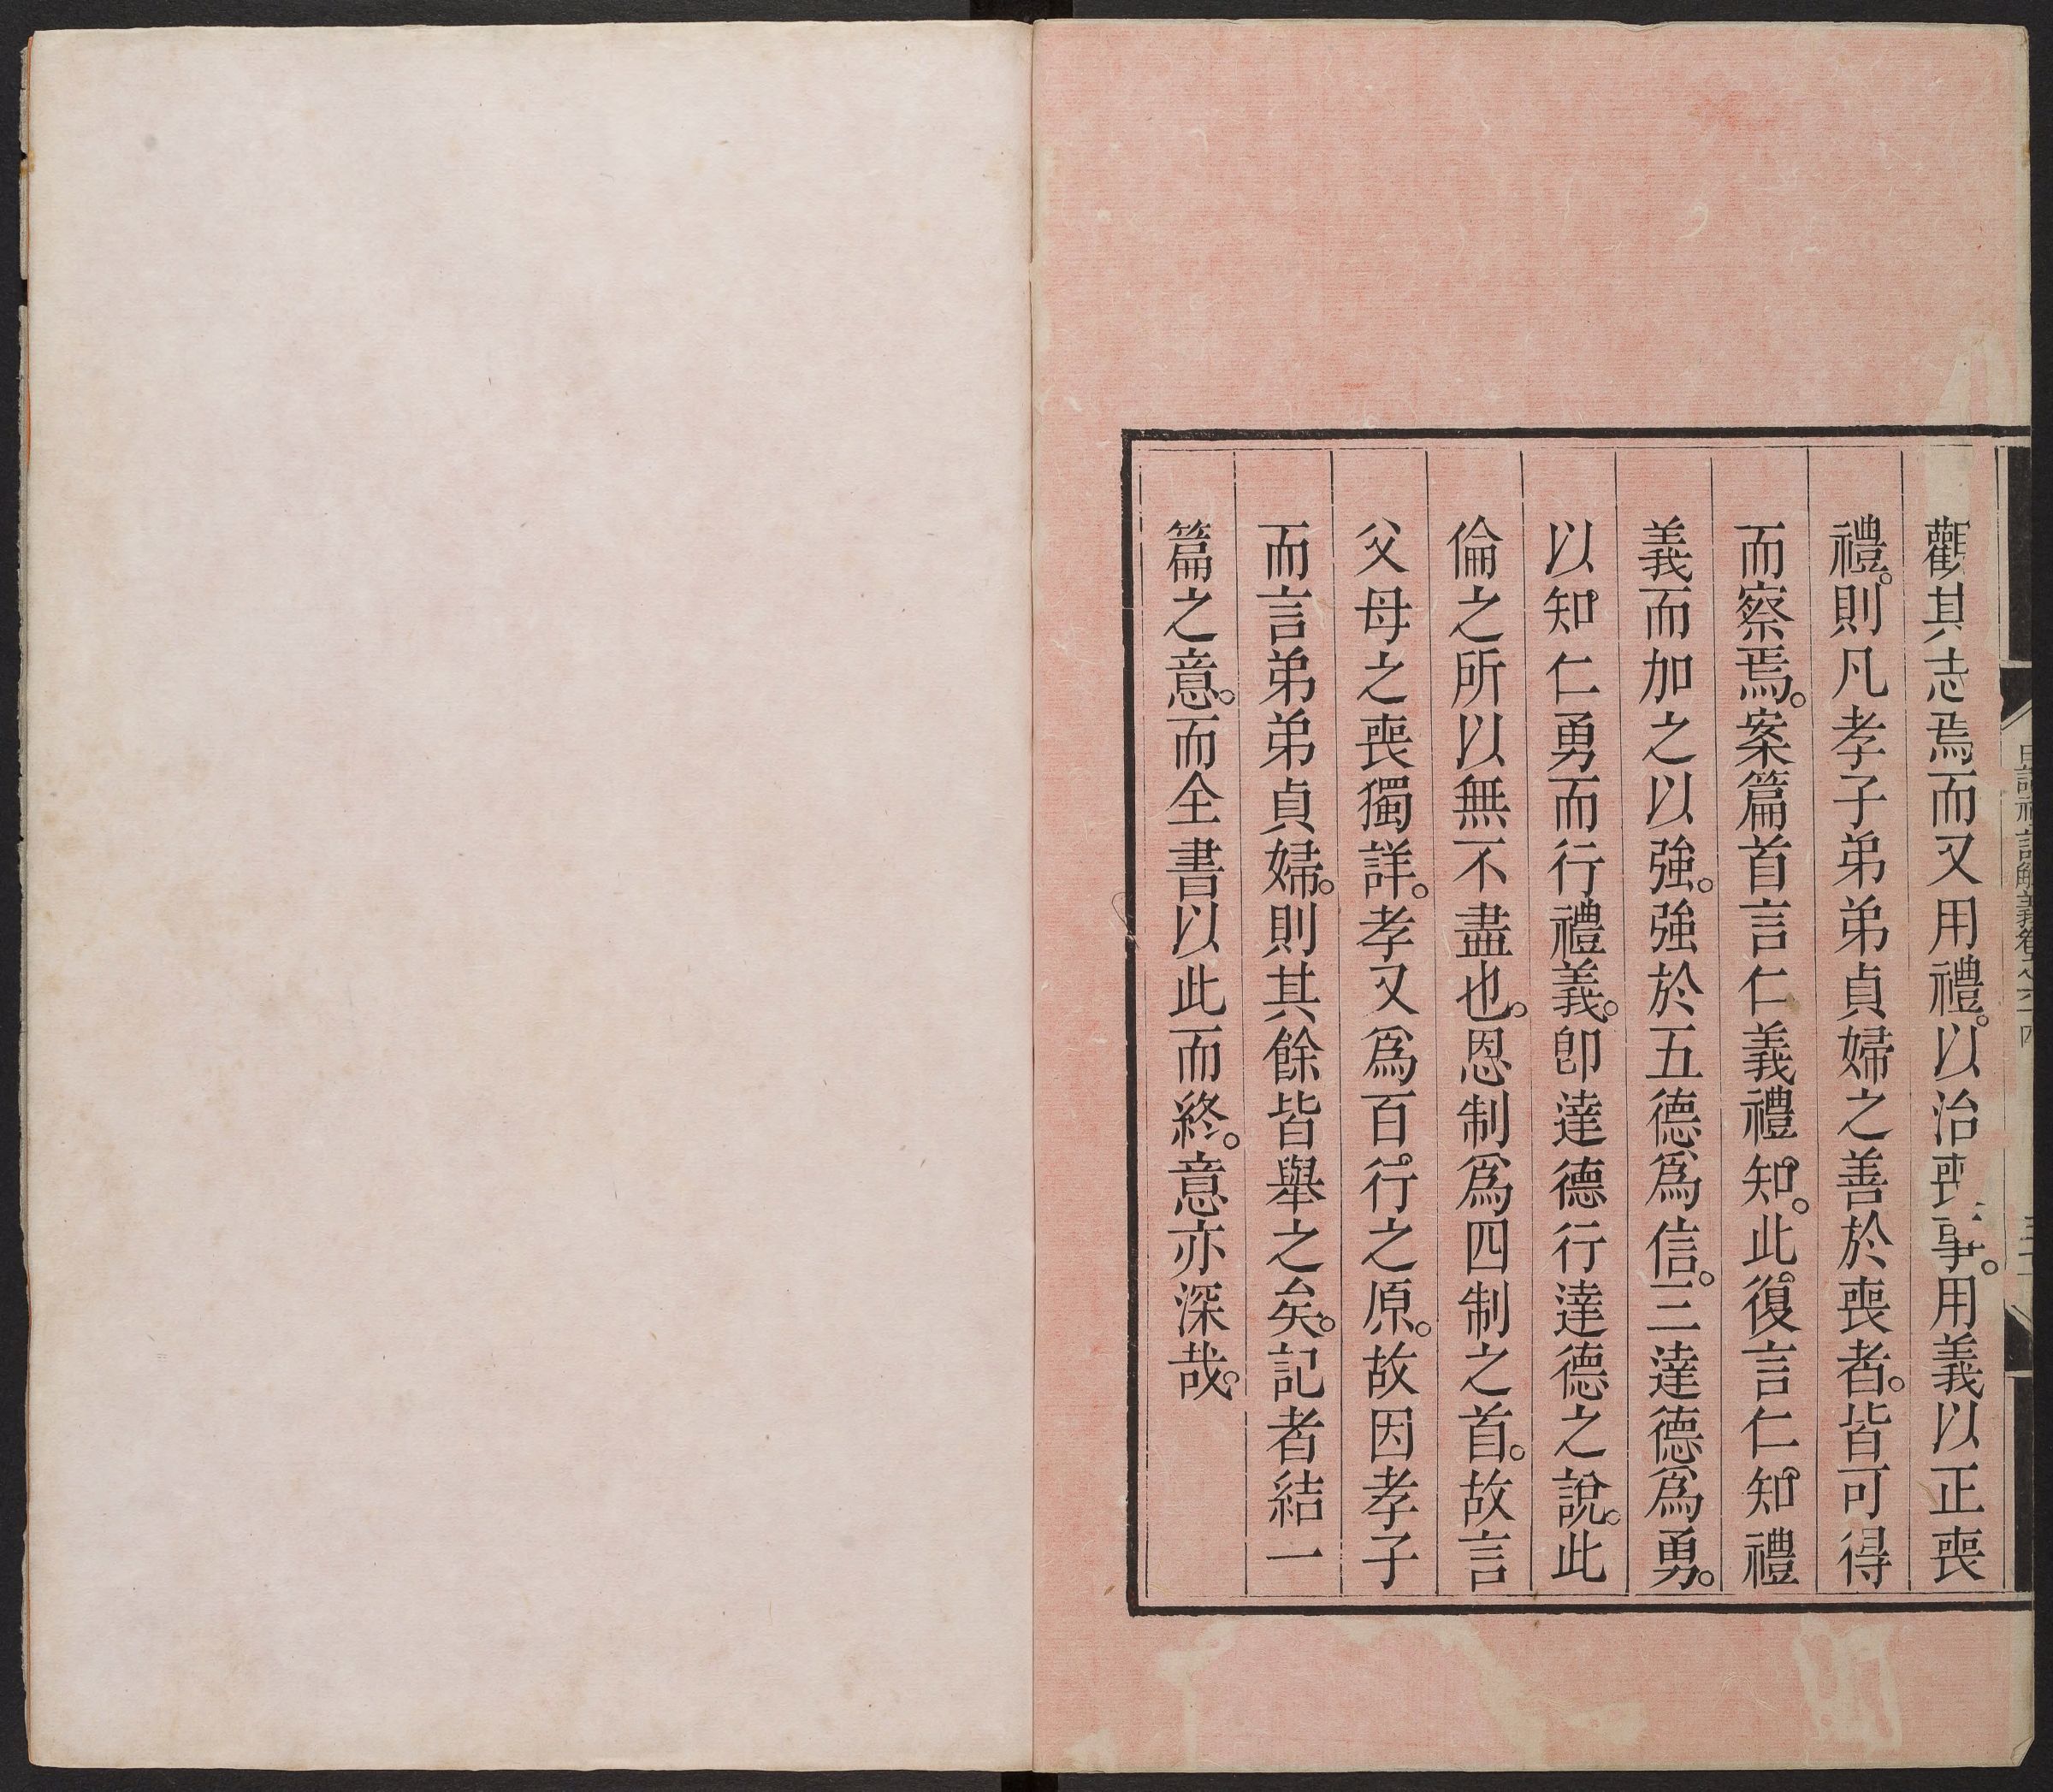 觀其志焉而又用禮。以治喪事。用義以正喪
禮。則凡孝子弟弟貞婦之善於喪者。皆可得
而察焉。案篇首言仁義禮知。此復言仁知禮
義而加之以強。強於五德爲信。三達德爲勇。
以知仁勇而行禮義。卽達德行達德之說。此
倫之所以無不盡也。恩制爲四制之首。故言
父母之喪獨詳。孝又爲百行之原。故因孝子
而言弟弟貞婦。則其餘皆舉之矣。記者結一
篇之意。而全書以此而終。意亦深哉。